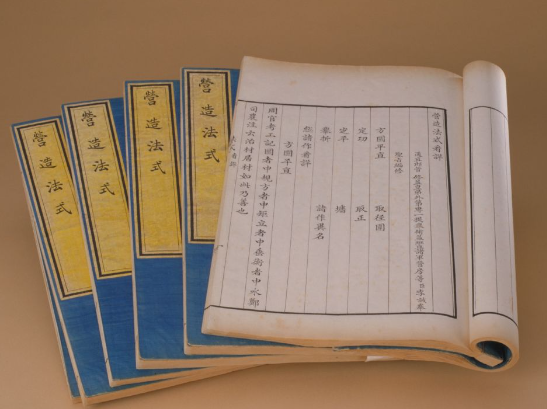 營造法式
營造法式
營造法式
營造法式
營造法式看詳
通直郎管修蓋皇弟外第專一提舉修蓋班直諸軍營房等臣李誡奉
聖旨編修
方圜平直 取徑圍
定功 取正
定平 牆
舉折 諸作異名
總諸作看詳
方圜平直
周官考工記圜者中規方者中矩立者中垂衡者中水鄭
司農注云治材居材如此乃善也